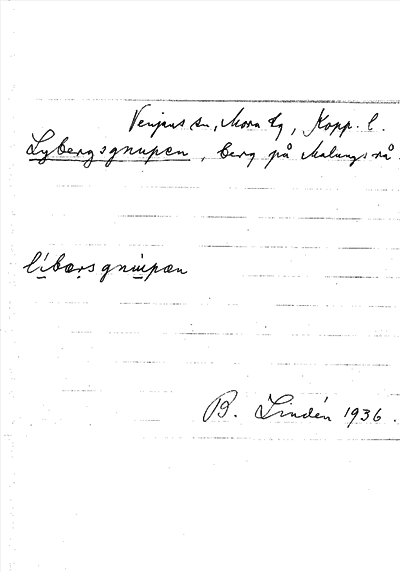 Venjans sn, Mora tg, Kopp. l.
Lybergsgnupen, berg på Malungs rå.
líbærs gnùpæn
B. Lindén 1936.